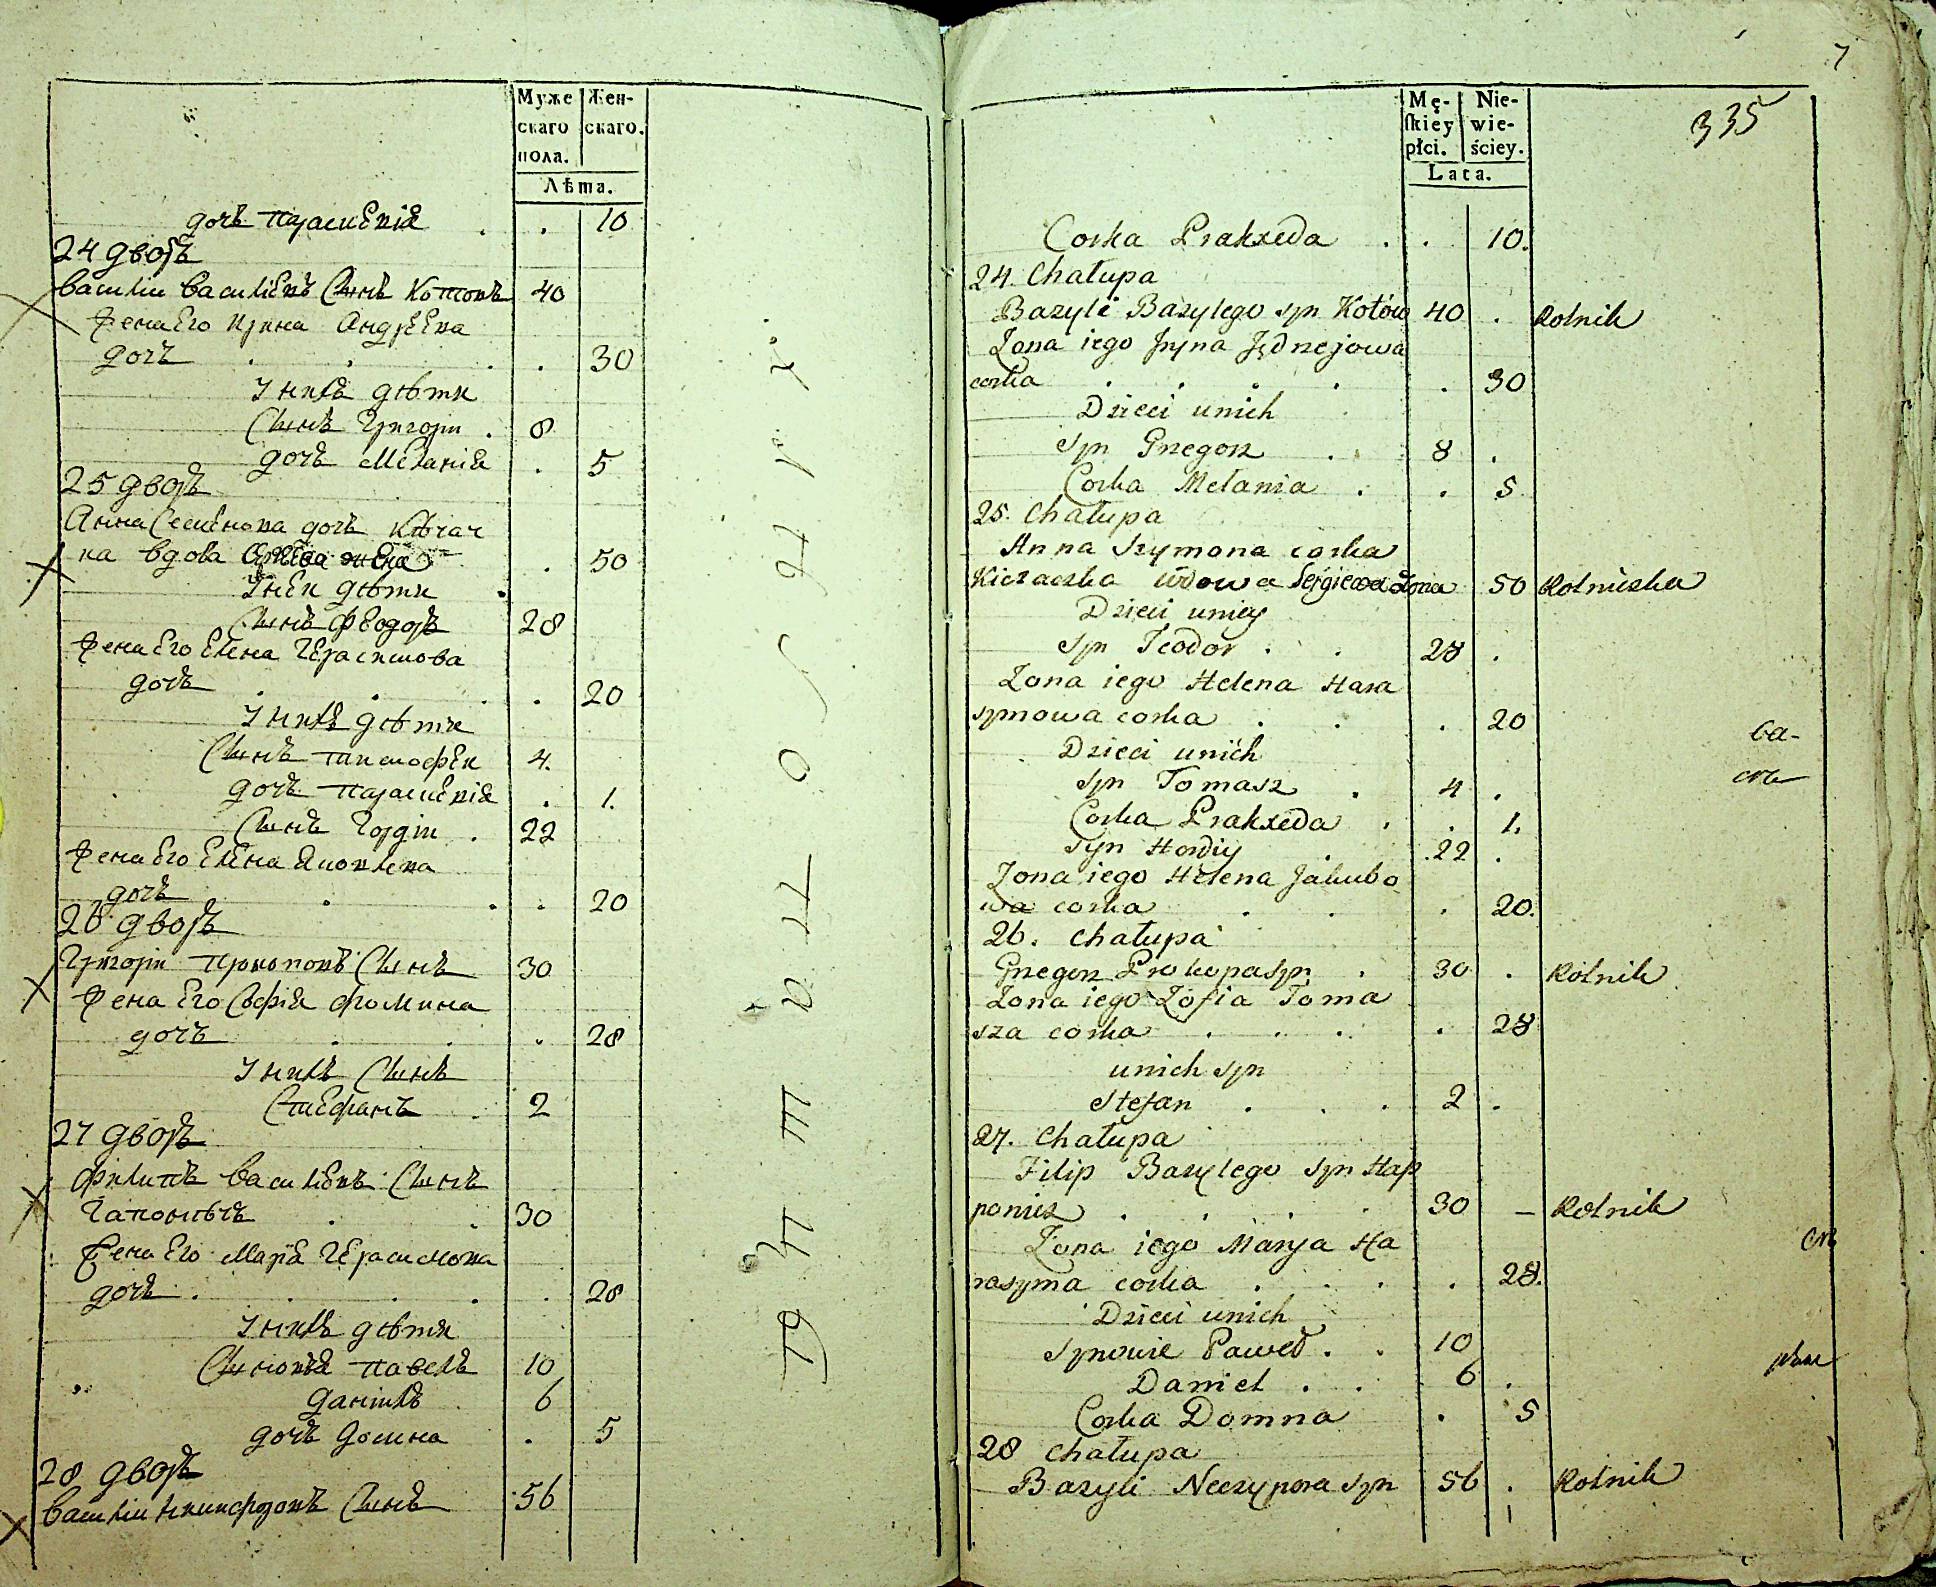 Муже
скаго
пола.
Жен-
скаго.
Лѣта.
дочь параскевія . . 10
24 дворъ
василіи василіевъ сынъ котовъ 40
жена его ирина андреева
дочь . . . . 30
у нихъ дѣти
сынъ григоріи . 8
дочь меланія . 5
25 дворъ
анна семенова дочь кѣчач
ка вдова жена . 50
у неи дѣти
сынъ феодоръ 28
жена его елена герасимова
дочь . . . . 20
у нихъ дѣти
сынъ тимофеи 4.
дочь параскевія . 1.
сынъ гордіи . 22
жена его елена яковлева
дочь . . . 20
26 дворъ
григоріи прокоповъ сынъ 30
жена его софія фомина
дочь . . . 28
у нихъ сынъ
стефанъ . 2
27 дворъ
филипъ василіевъ сынъ
гапоничъ . . 30
жена его марія герасимова
дочь . . . . . 28
у нихъ дѣти
сыновья павелъ 10
даніилъ 6
дочь домна . 5
28 дворъ
василіи никифоровъ сынъ 56
7
335
Mę-
skiey
płci.
Nie-
wie-
ściey.
Lata.
Corka Prakxeda . . 10.
24. Chałupa
Bazyli Bazylego syn Kotów 40 . Rolnik
Zona iego Jryna Jędrzejowa
corka . . . . . 30
Dzieci unich
syn Grzegorz . . 8 .
Corka Mełania . . 5
25. Chałupa
Anna Szymona corka
Kiczaczka wdowa Sergiewa żona 50 Rolniczka
Dzieci uniey
syn Teodor . . 28 .
Zona iego Helena Hara
symowa corka . . . 20
Dzieci unich
syn Tomasz . 4 .
Corka Prakxeda . . 1.
syn Hordiy . 22 .
Zona iego Helena Jakubo
wa corka . . . 20.
26. Chałupa
Grzegorz Prokopa syn . 30 . Rolnik
Zona iego Zofia Toma
sza corka . . . . 28
unich syn
Stefan . . . 2 .
27. Chałupa
Filip Bazylego syn Hap
ponicz . . . . 30 – Rolnik
Zona iego Marya Ha
rasyma corka . . . . 28.
Dzieci unich
synowie Paweł . . 10
Daniel . . 6 .
Corka Domna . 5
28 Chałupa
Bazyli Neczypora syn 56 . Rolnik